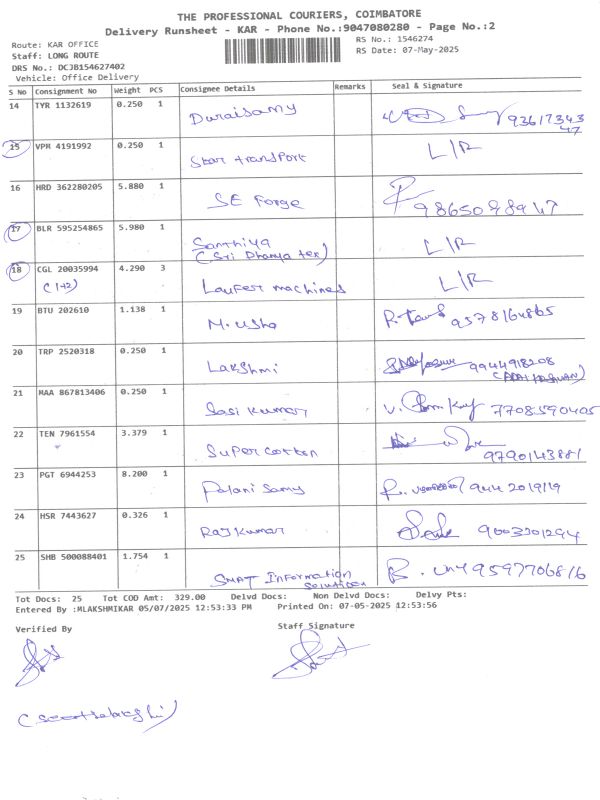 THE PROFESSIONAL COURIERS, COIMBATORE
Delivery Runsheet - KAR - Phone No.:9047080280 - Page No.:2
Route: KAR OFFICE
RS No.: 1546274
Staff: LONG ROUTE
RS Date: 07-May-2025
DRS No.: DCJB154627402
Vehicle: Office Delivery
S No Consignment No Weight PCS Consignee Details Remarks Seal & Signature
14 TYR 1132619 0.250 1 Duraisamy 93617343
47
15 VPM 4191992 0.250 1 Star transport L/R
16 HRD 362280205 5.880 1 SE Forge 9865098947
17 BLR 595254865 5.980 1 Santhiya L/R
(Sri Dhanya tex)
18 CGL 20035994 4.290 3 Laufer machines L/R
(1+2)
19 BTU 202610 1.138 1 M. usha 9578164865
20 TRP 2520318 0.250 1 Lakshmi 9944918208
21 MAA 867813406 0.250 1 Sasi kumar 7708590405
22 TEN 7961554 3.379 1 Super cotton
9790143881
23 PGT 6944253 8.200 1 Palani Samy 9442019119
24 HSR 7443627 0.326 1 Raj Kumar 9003301294
25 SHB 500088401 1.754 1 SMAT Information 9597706816
solutions
Tot Docs: 25 Tot COD Amt: 329.00 Delvd Docs: Non Delvd Docs: Delvy Pts:
Entered By :MLAKSHMIKAR 05/07/2025 12:53:33 PM Printed On: 07-05-2025 12:53:56
Verified By
Staff Signature